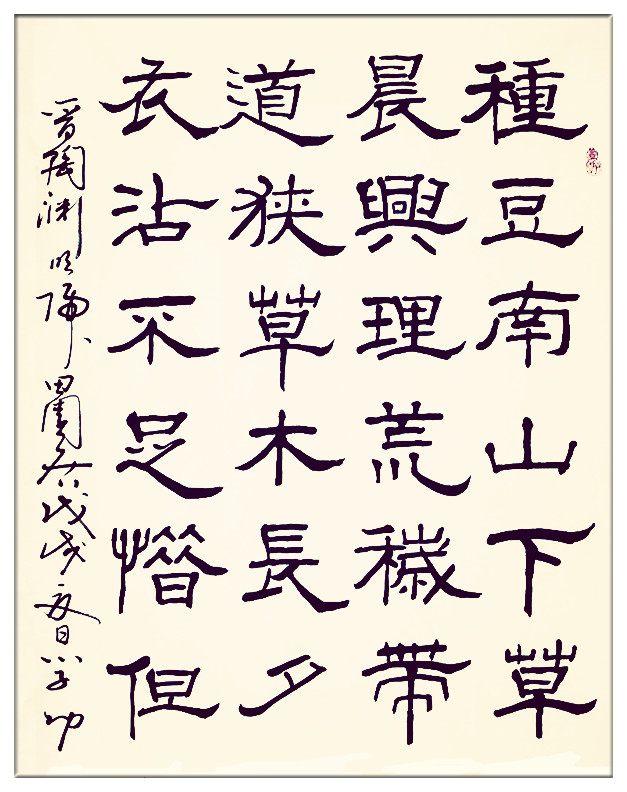 種豆南山下草
晨興理荒穢帶
道狹草木長夕
衣沾不足惜但
晉陶淵明歸田園居戊戌夏日